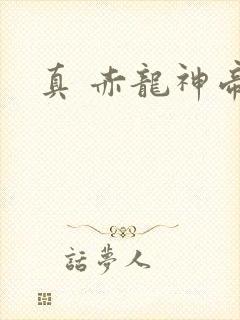 真 赤龍神帝
話夢人